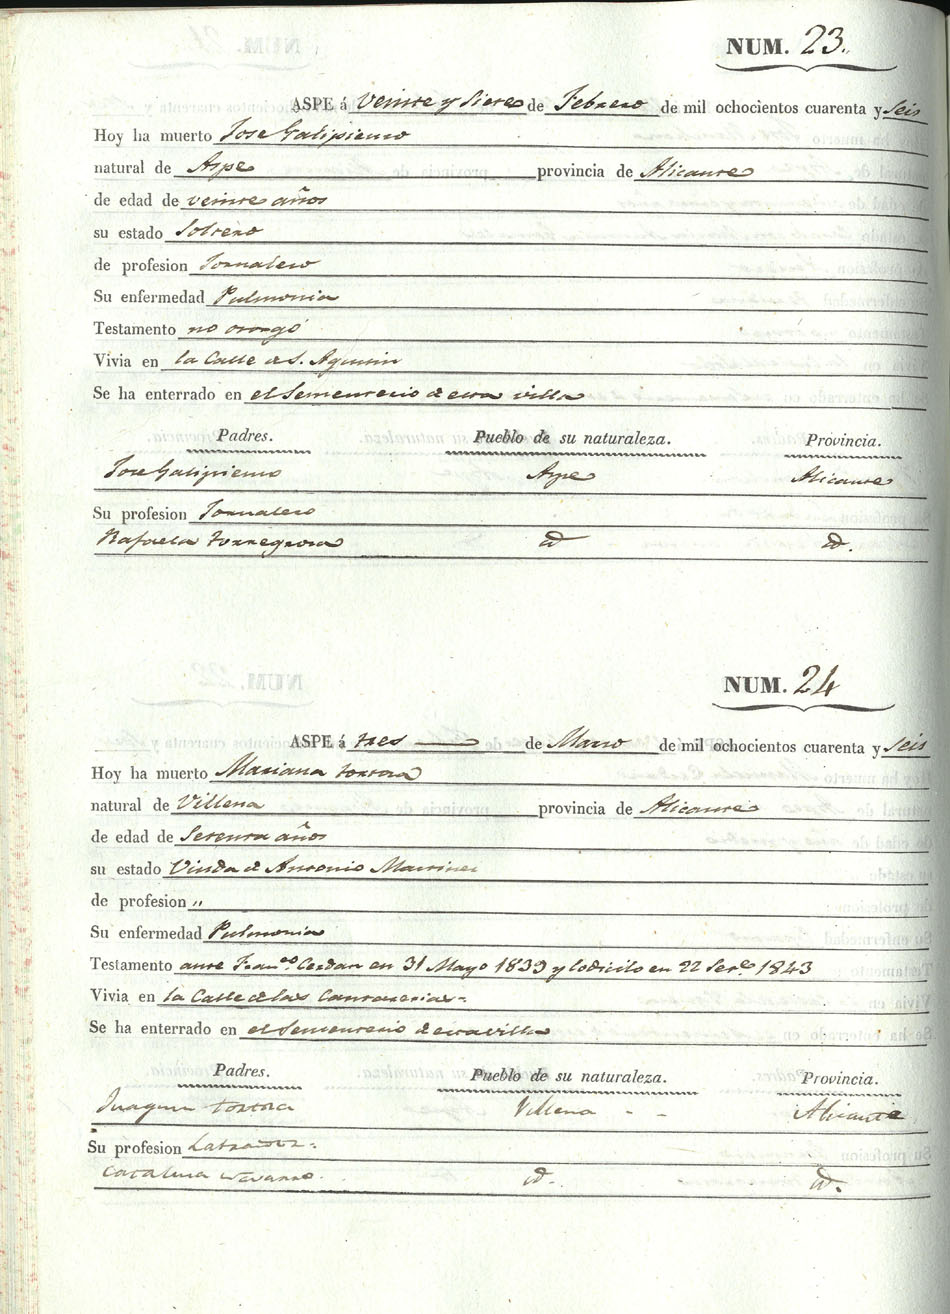 NUM. 23.
ASPE á Veinte y Siete de Febrero de mil ochocientos cuarenta y seis
Hoy ha muerto Jose Galipienso
natural de Aspe provincia de Alicante
de edad de veinte años
su estado Soltero
de profesion Jornalero
Su enfermedad Pulmonia
Testamento no otorgó
Vivia en la Calle de S. Agustin
Se ha enterrado en el Sementerio de esta villa
Padres. Pueblo de su naturaleza. Provincia.
Jose Galipienso Aspe Alicante
Su profesion Jornalero
Rafaela Torregrosa id id.
NUM. 24
ASPE á tres de Marzo de mil ochocientos cuarenta y seis
Hoy ha muerto Mariana tortosa
natural de Villena provincia de Alicante
de edad de Setenta años
su estado Viuda de Antonio Martinez
de profesion „
Su enfermedad Pulmonia
Testamento ante Fran.co Cerdan en 31 Mayo 1839 y Codicilo en 22 Set.e 1843
Vivia en la Calle de las Cantarerias=
Se ha enterrado en el Sementerio de esta villa
Padres. Pueblo de su naturaleza. Provincia.
Juaquin tortosa Villena - - Alicante
Su profesion Labrador=
Catalina Navarro. id. id.